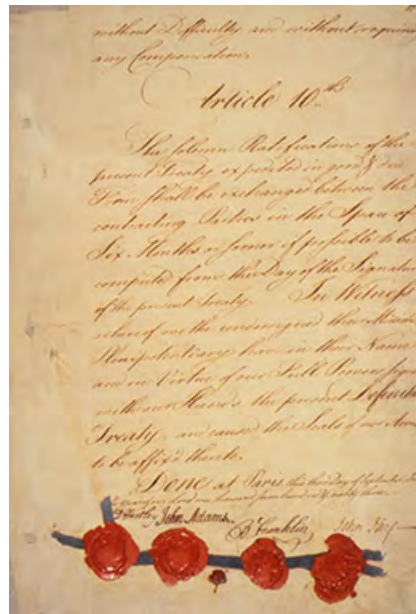 without Difficulty and without requiring
any Compensation.
Article 10th
The solemn Ratifications of the
present Treaty expedited in good & due
Form shall be exchanged between the
contracting Parties in the Space of
Six Months or sooner if possible to be
computed from the Day of the Signature
of the present Treaty. In Witness
whereof we the undersigned their Ministers
Plenipotentiary have in their Name
and in Virtue of our Full Powers signed
with our Hands the present Definitive
Treaty, and caused the Seals of our Arms
to be affix'd thereto.
Done at Paris, this third Day of September,
one thousand seven hundred & eighty three.
D Hartley John Adams. B Franklin John Jay